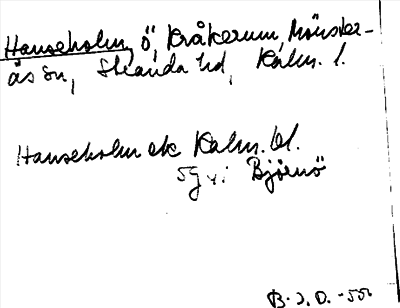 Hanseholm, ö, Kråkerum, Mönster-
ås sn, Stranda hd, Kalm. l.
Hanseholm ek Kalm. bl.
5g Björnö
B.J.D. -55